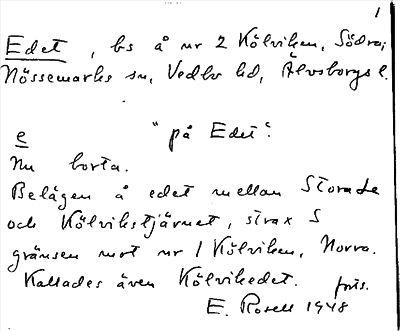 1
Edet, bs å nr 2 Kölviken, Södra;
Nössemarks sn, Vedbo hd, Älvsborgs l.
e "på Edet".
Nu borta.
Belägen å edet mellan Stora Le
och Kölvikstjärnet, strax S
gränsen mot nr 1 Kölviken, Norra.
Kallades även Kölvikedet.
E. Rosell 1948